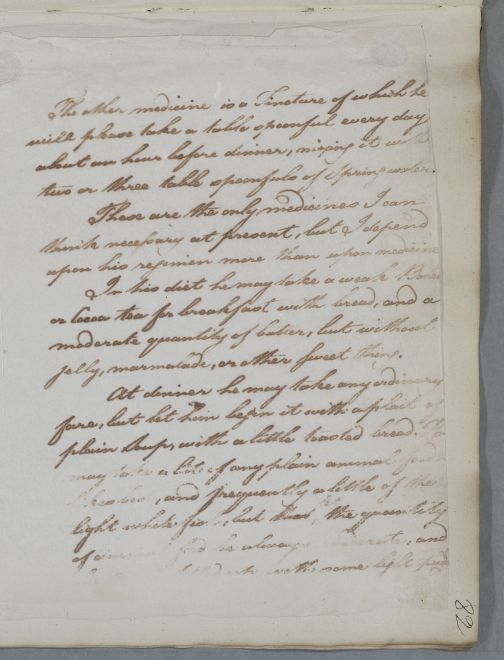 The other medicine is a Tincture of which he
will please take a table spoonful every day
about an hour before dinner, mixing it with
two or three table spoonfuls of Spring water.
These are the only medicines I can
think necessary at present, but I depend
upon his regimen more than upon medicine
In his diet he may take a weak
or Cocoa tea for breakfast with bread, and a
moderate quantity of butter, but without
jelly, marmalade, or other sweet thing.
At dinner he may take any ordinary
fare, but let him begin it with a plate of
plain Soup, with a little toasted bread.
may take a bit of any plain animal food
and frequently a little of the
light white fish, but let the quantity
of animal food be always moderate, and
with some light pud
82